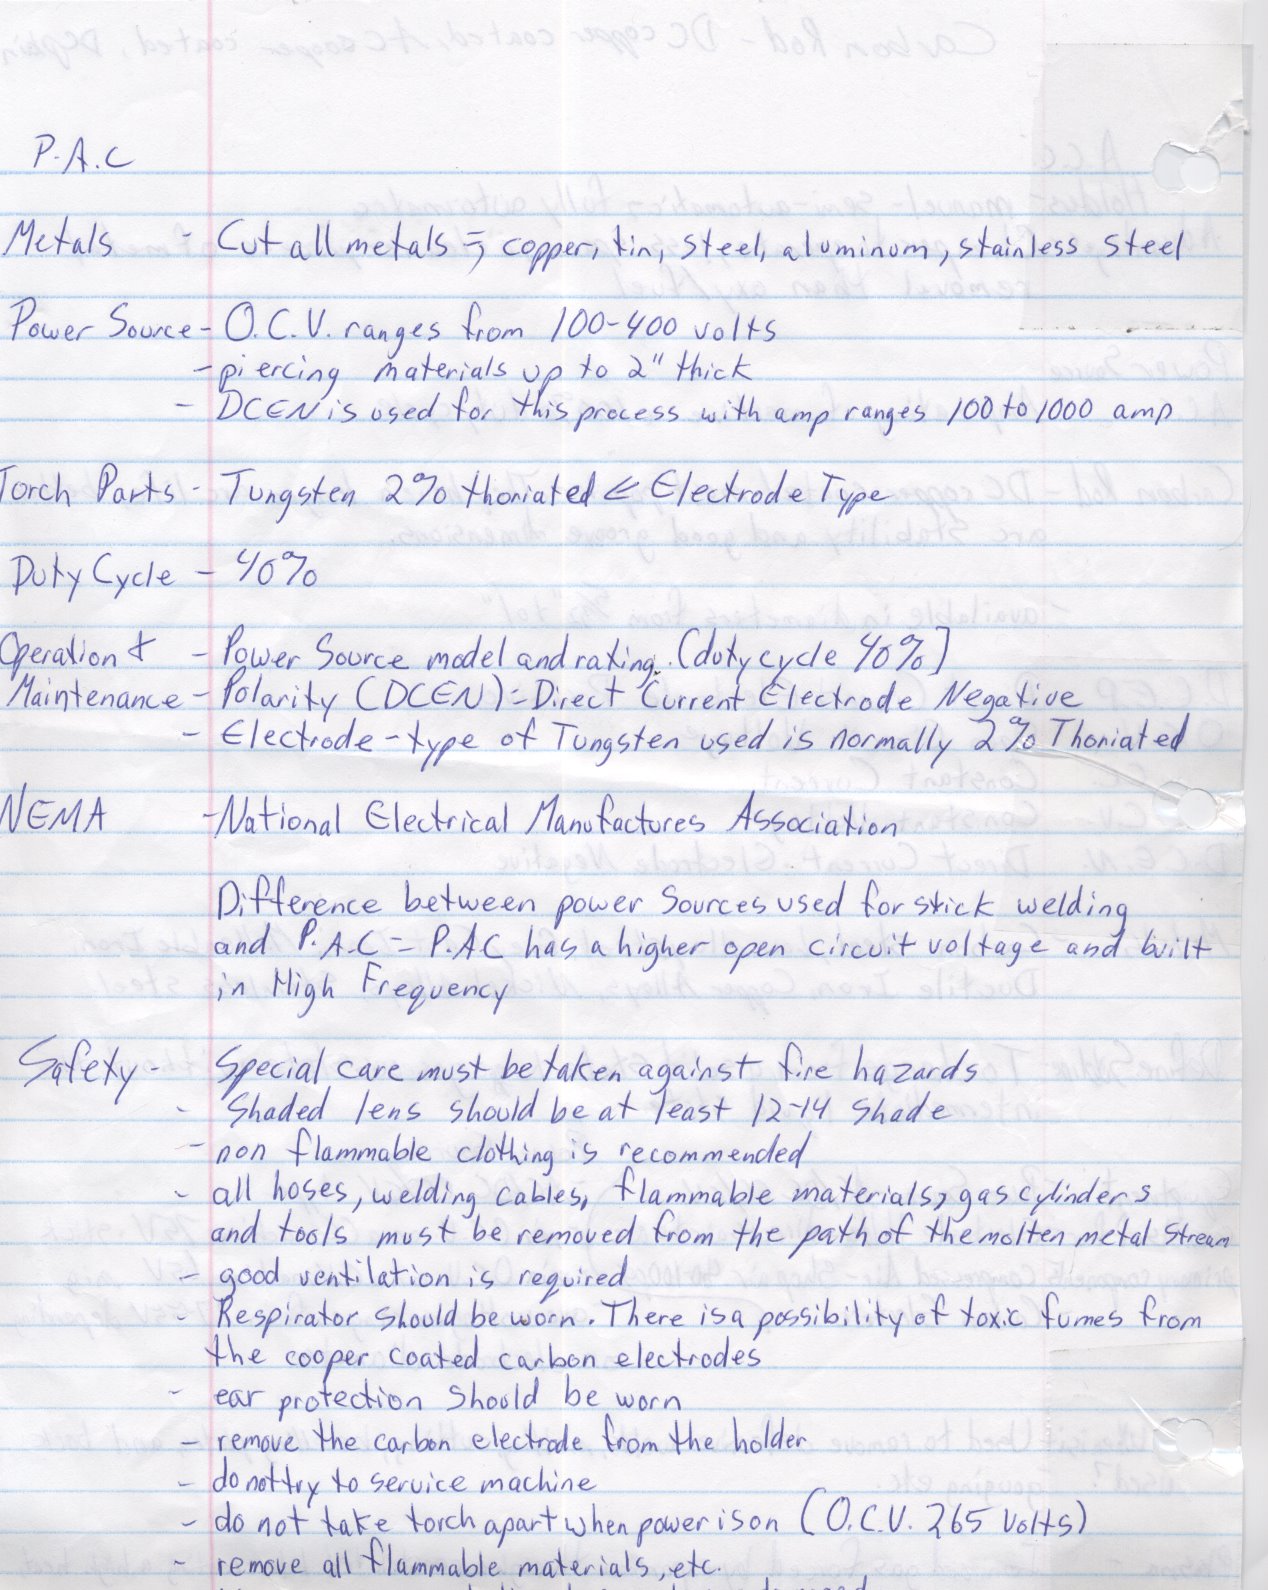 P.A.C
Metals - Cut all metals => copper, tin, steel, aluminum, stainless steel
Power Source - O.C.V. ranges from 100-400 volts
- piercing materials up to 2" thick
- DCEN is used for this process with amp ranges 100 to 1000 amp
Torch Parts - Tungsten 2% thoriated <= Electrode Type
Duty Cycle - 40%
Operation & - Power Source model and rating. (duty cycle 40%]
Maintenance - Polarity (DCEN) = Direct Current Electrode Negative
- Electrode - type of Tungsten used is normally 2% Thoriated
NEMA - National Electrical Manufactures Association
Difference between power Sources used for stick welding
and P.A.C = P.A.C has a higher open circuit voltage and built
in High Frequency
Safety - Special care must be taken against fire hazards
- Shaded lens should be at least 12-14 shade
- non flammable clothing is recommended
- all hoses, welding cables, flammable materials, gas cylinders
and tools must be removed from the path of the molten metal stream
- good ventilation is required
- Respirator should be worn. There is a possibility of toxic fumes from
the cooper coated carbon electrodes
- ear protection should be worn
- remove the carbon electrode from the holder
- do not try to service machine
- do not take torch apart when power is on (O.C.V. 265 volts)
- remove all flammable materials, etc.